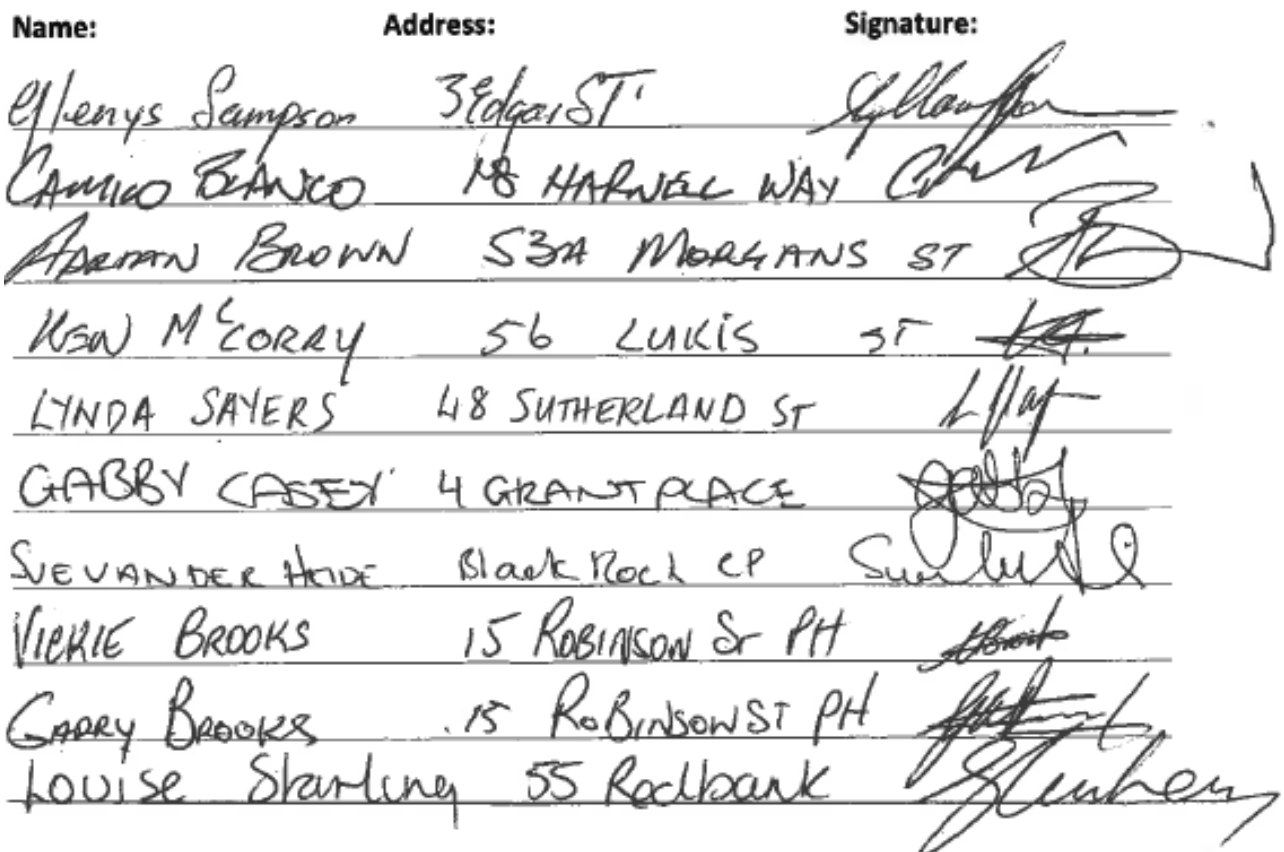 Name: Address: Signature:
Glenys Sampson 3 Edgar ST
CAMILO BLANCO 18 HARNELL WAY
BROWN 53A MORGANS ST
KEN McCORRY 56 LUKIS ST
LYNDA SAYERS 48 SUTHERLAND ST
GABBY CASEY 4 GRANT PLACE
SUE VAN DER HEIDE Black Rock CP
VICKIE BROOKS 15 ROBINSON St PH
GARRY BROOKS 15 ROBINSON ST PH
LOUISE Starling 55 Redbank